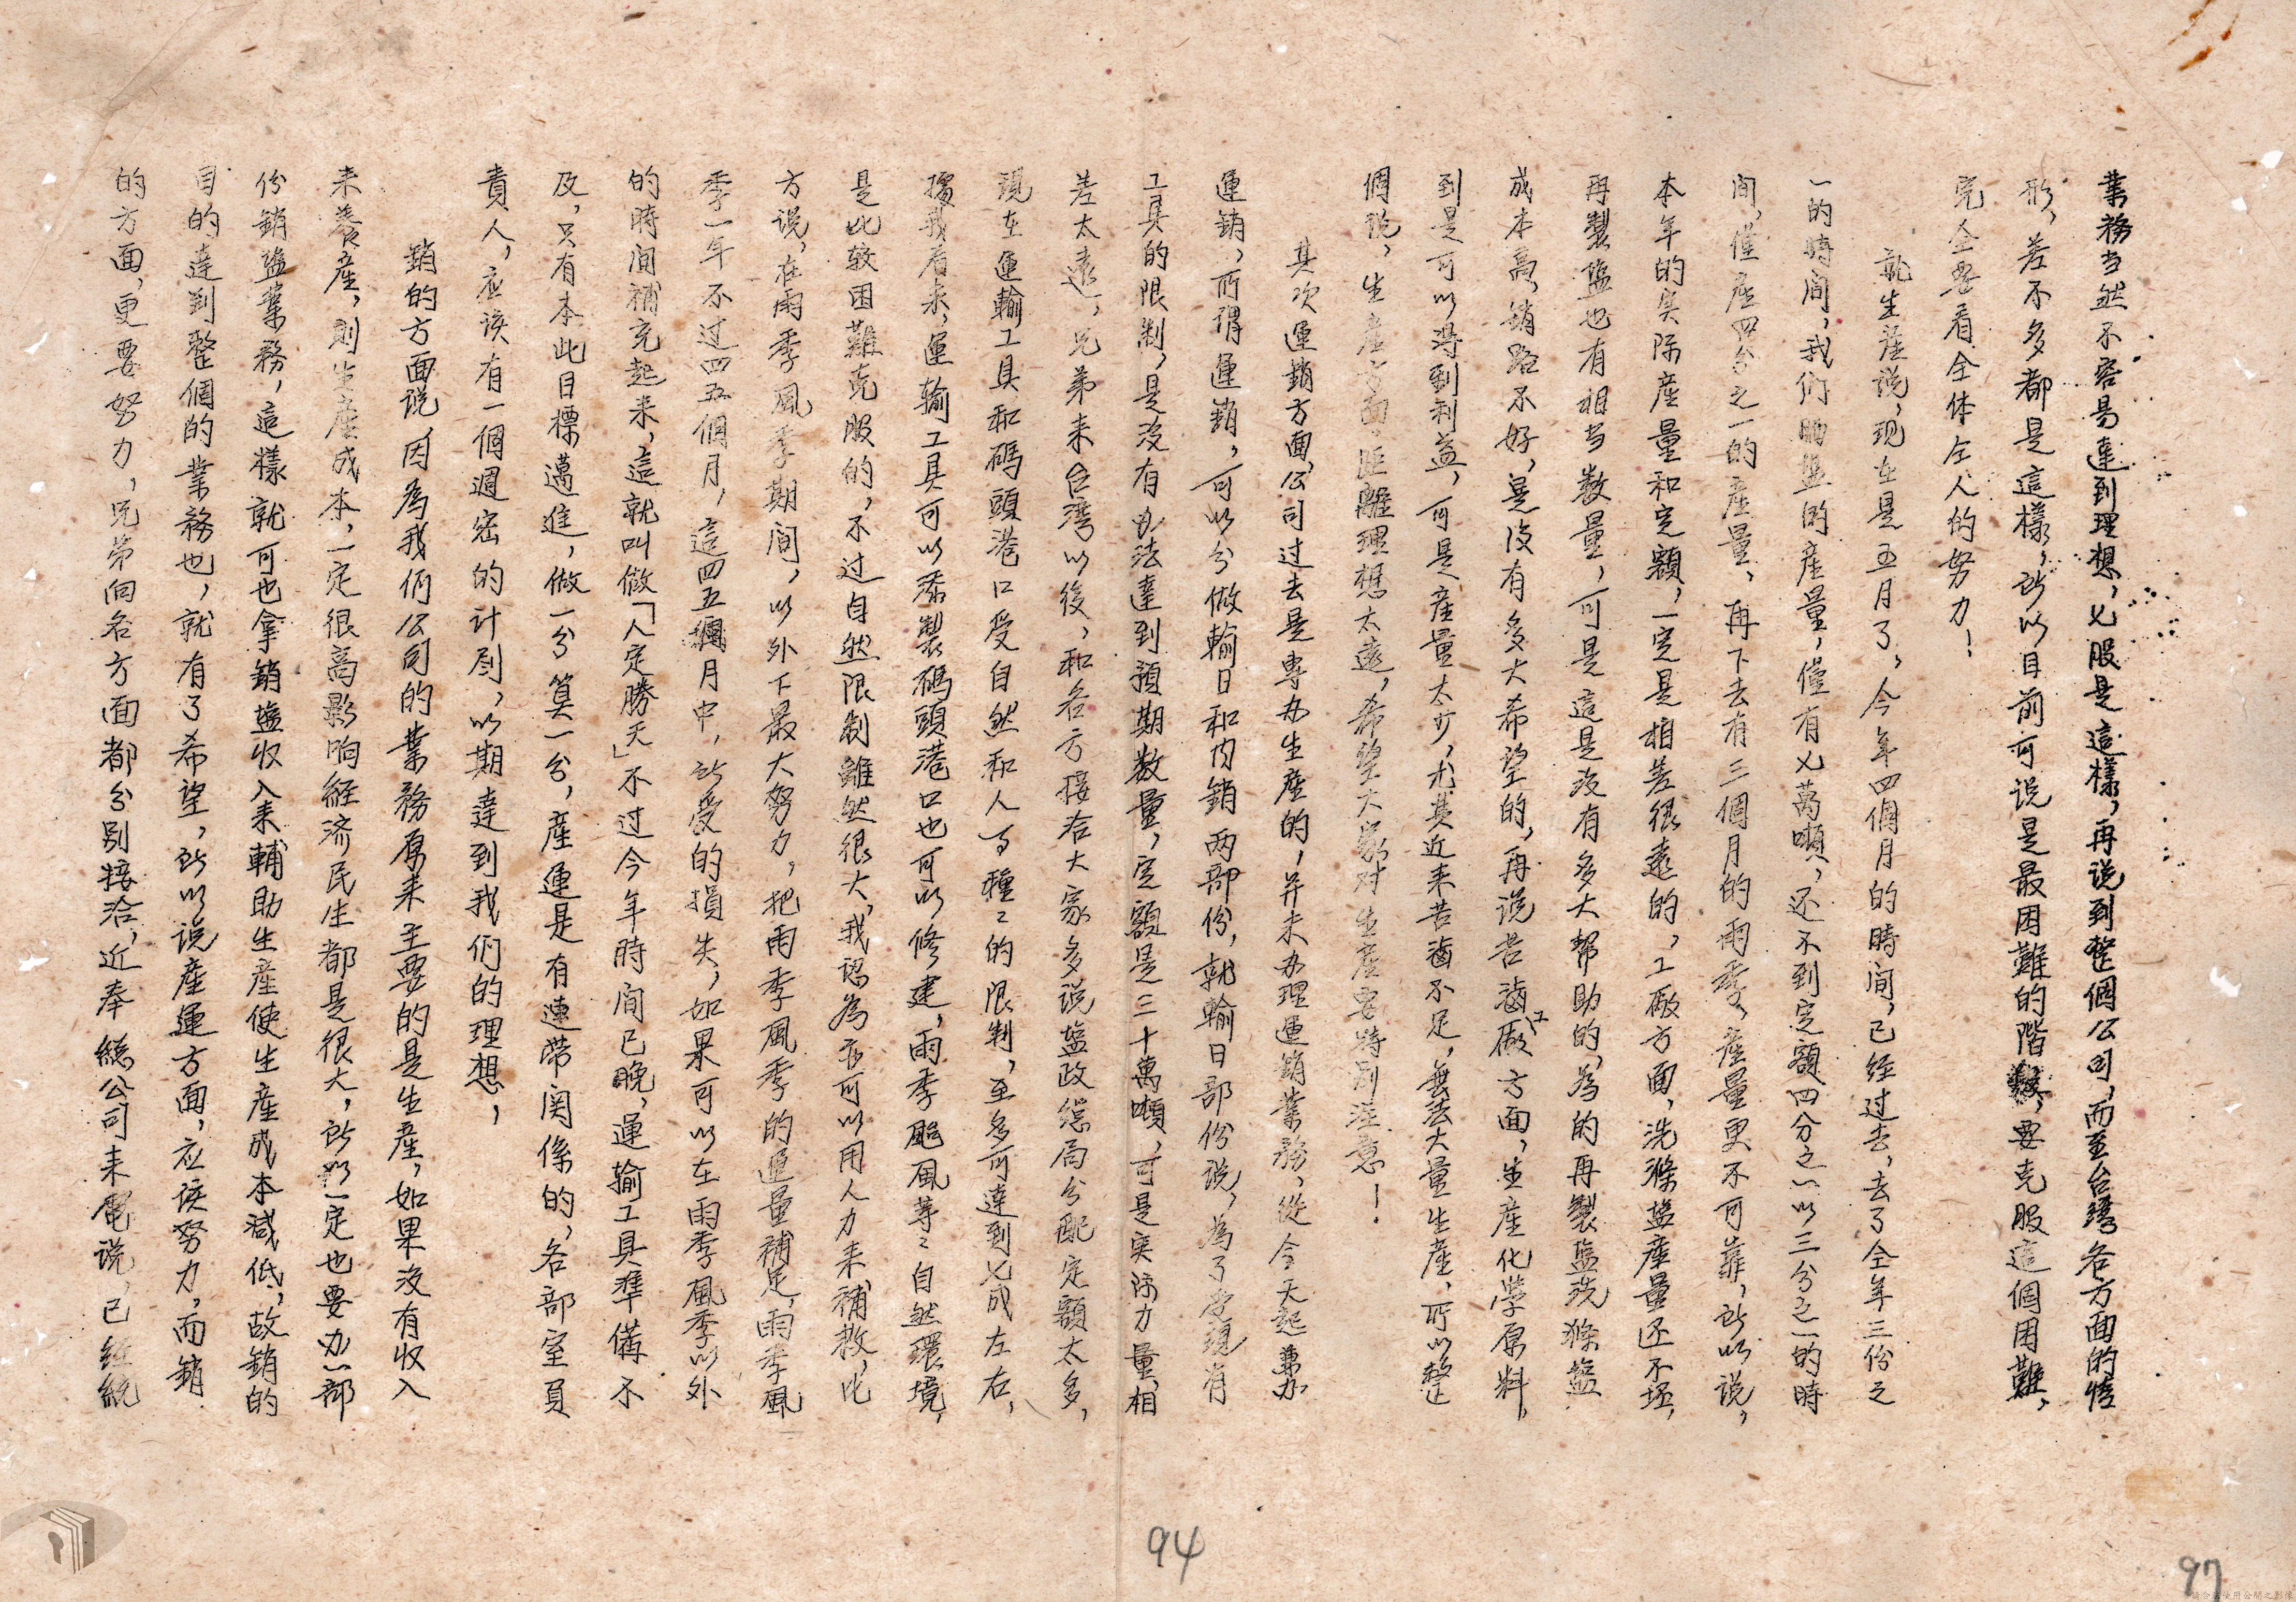 業務当然不容易達到理想，乂股是這樣，再说到整個公司，而至台灣各方面的情
形，差不多都是這樣，所以目前可说是最困難的階段，要克服這個困難，
完全要看全体仝人的努力！
就生産说，现在是五月了，今年四個月的時间，已经过去，去了全年三份之
一的時间，我们晒盐的産量，僅有乂萬噸，还不到定額四分之一以三分之一的時
间，僅産四分之一的産量，再下去有三個月的雨季，産量更不可靠，所以说，
本年的实际産量和定額，一定是相差很遠的，工廠方面，洗滌盐産量还不坯，
再製盐也有相当数量，可是這是没有多大帮助的，為的再製盐洗滌盐
成本高，銷路不好，是没有多大希望的，再说苦滷工廠方面，生産化學原料，
到是可以得到利益，可是産量太少，尤其近来苦滷不足，無法大量生産，所以整
個说，生産方面，距離理想太遠，希望大家对生産要特别注意！
其次運銷方面，公司过去是專办生産的，并未办理運銷業務，從今天起兼办
運銷，所谓運銷，可以分做輸日和内銷两部份，就輸日部份说，為了受現有
工具的限制，是没有办法達到預期数量，定額是三十萬噸，可是实际力量，相
差太遠，兄弟来台湾以後，和各方接洽大家多说盐政總局分配定額太多，
现在運輸工具和碼頭港口受自然和人事種ミ的限制，至多可達到乂成左右，
據我看来，運输工具可以添製碼頭港口也可以修建，雨季颱風等ミ自然環境，
是比较困難克服的，不过自然限制雖然很大，我認為亦可以用人力来補救，比
方说，在雨季風季期间，以外下最大努力，把雨季風季的運量補足，雨季風
季一年不过四五個月，這四五個月中，所受的損失，如果可以在雨季風季以外
的時间補充起来，這就叫做「人定勝天」不过今年時间已晚，運输工具準備不
及，只有本此目標邁進，做一分算一分，産運是有連帶関係的，各部室負
責人，应该有一個週密的计劃，以期達到我们的理想，
銷的方面说，因為我们公司的業務原来主要的是生産，如果没有收入
来養産，則生産成本，一定很高影响経济民生都是很大，所以一定也要办一部
份銷盐業務，這樣就可也拿銷盐收入来輔助生産使生産成本減低，故銷的
目的達到整個的業務也，就有了希望，所以说産運方面，应该努力，而銷
的方面，更要努力，兄弟向各方面都分别接洽，近奉 總公司来電说，已經統
94
97